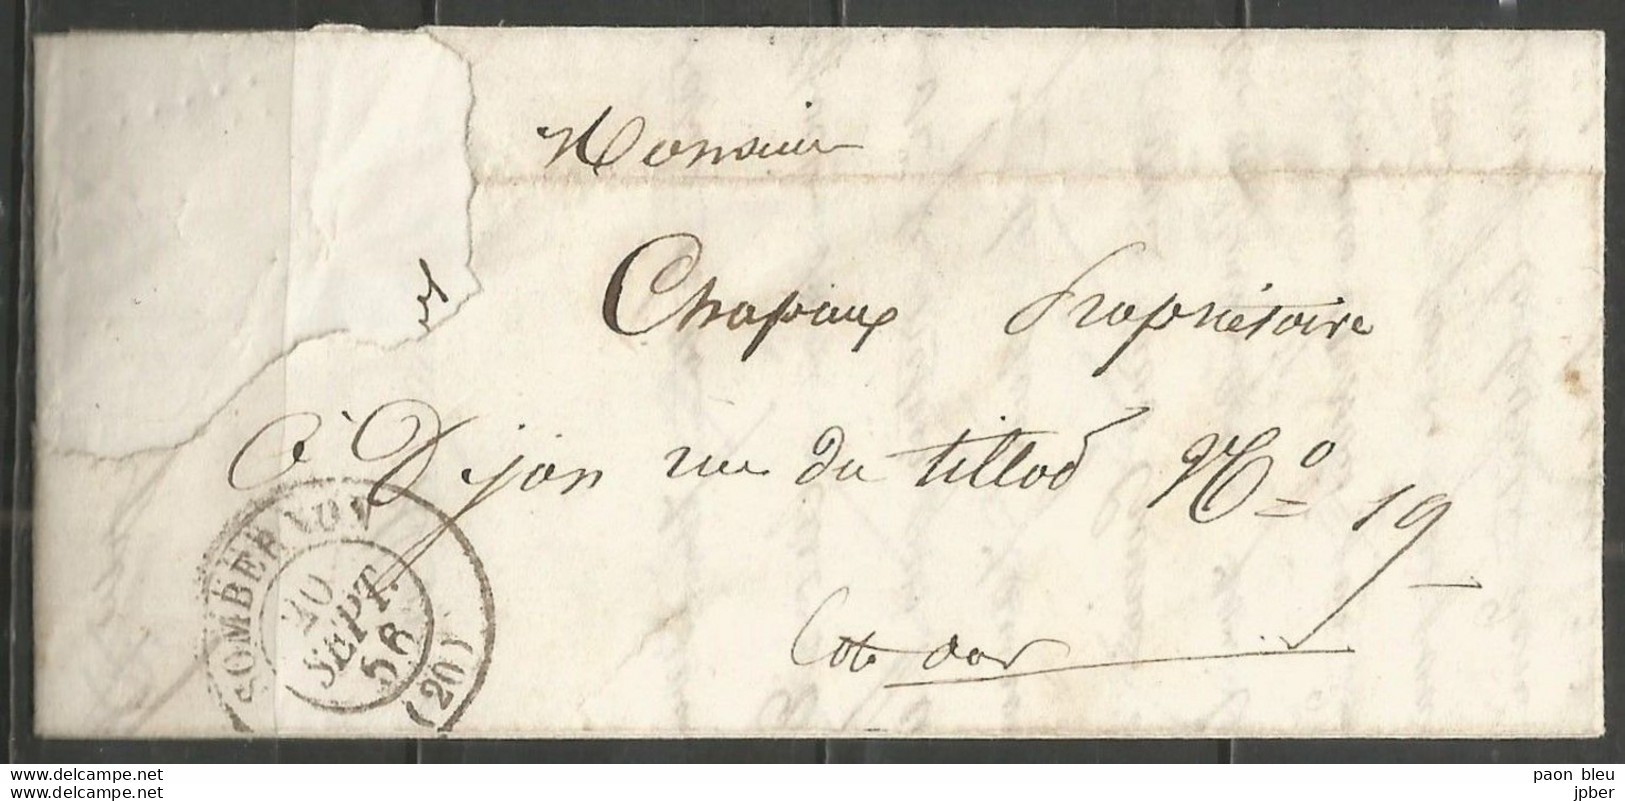 Monsieur
Chapiaux Propriétaire
à Dijon rue du tillod No 19
Cote dor
SOMBERNON
20
SEPT.
56
(20)
www.delcampe.net
paon bleu
www.delcampe.net
jpber